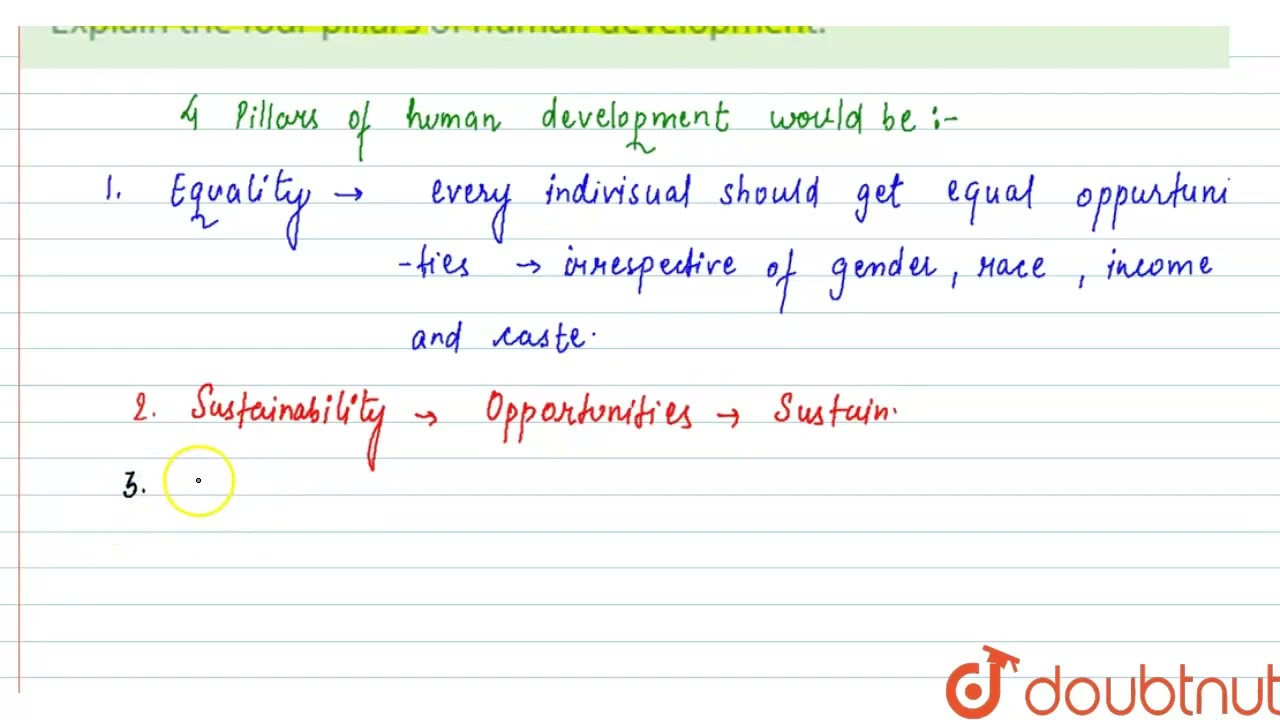 Explain the four pillars of human development.
4 Pillars of human development would be :-
1. Equality → every indivisual should get equal oppurtuni
-ties → irrespective of gender, race, income
and caste.
2. Sustainability → Opportunities → Sustain.
3.
doubtnut